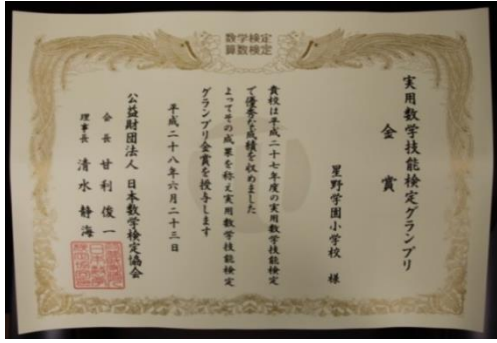 数学検定
算数検定
実用数学技能検定グランプリ
金賞
星野学園小学校 様
貴校は平成二十七年度の実用数学技能検定
で優秀な成績を収めました
よってその成果を称え実用数学技能検定
グランプリ金賞を授与します
平成二十八年六月二十三日
公益財団法人 日本数学検定協会
会長 甘利俊一
理事長 清水静海